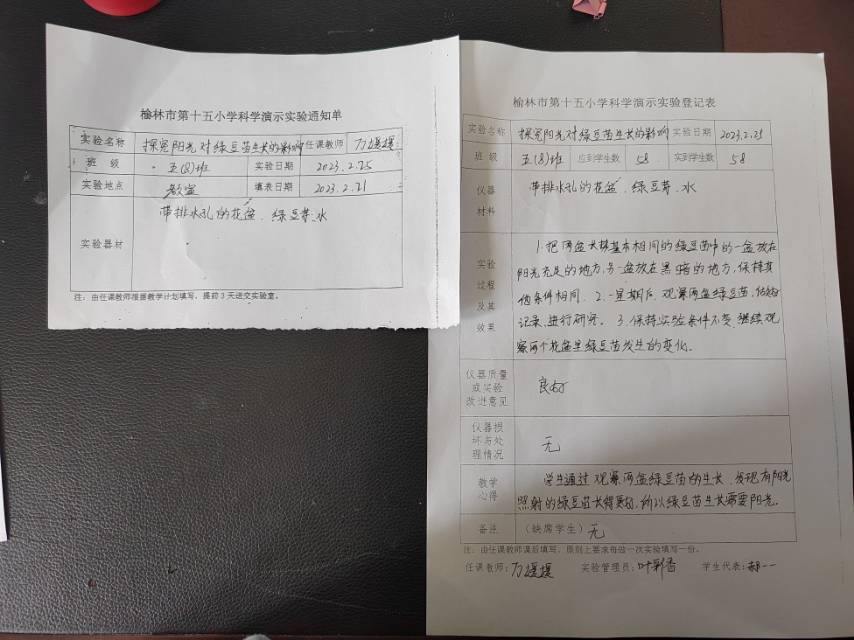 榆林市第十五小学科学演示实验通知单
实验名称 探究阳光对绿豆苗生长的影响 任课教师 万媛媛
班 级 五(8)班 实验日期 2023.2.25
实验地点 教室 填表日期 2023.2.21
实验器材
带排水孔的花盆、绿豆芽、水
注:由任课教师根据教学计划填写,提前3天送交实验室。
榆林市第十五小学科学演示实验登记表
实验名称 探究阳光对绿豆苗生长的影响 实验日期 2023.2.25
班 级 五(8)班 应到学生数 58 实到学生数 58
仪器
材料
带排水孔的花盆、绿豆芽、水
实验
过程
及其
效果
1.把两盆长梯基本相同的绿豆苗中的一盆放在
阳光充足的地方,另一盆放在黑暗的地方,保持其
他条件相同。2.一星期后,观察两盆绿豆苗,做好
记录,进行研究。3.保持实验条件不变,继续观
察两个花盆里绿豆苗发生的变化。
仪器质量
或实验
改进意见
良好
仪器损
坏与处
理情况
无
教学
心得
学生通过观察两盆绿豆苗的生长,发现有阳光
照射的绿豆苗长得更好,所以绿豆苗生长需要阳光。
备注 (缺席学生)无
注:由任课教师课后填写,原则上要求每做一次实验填写一份。
任课教师:万媛媛 实验管理员:叶彩香 学生代表:郝一一